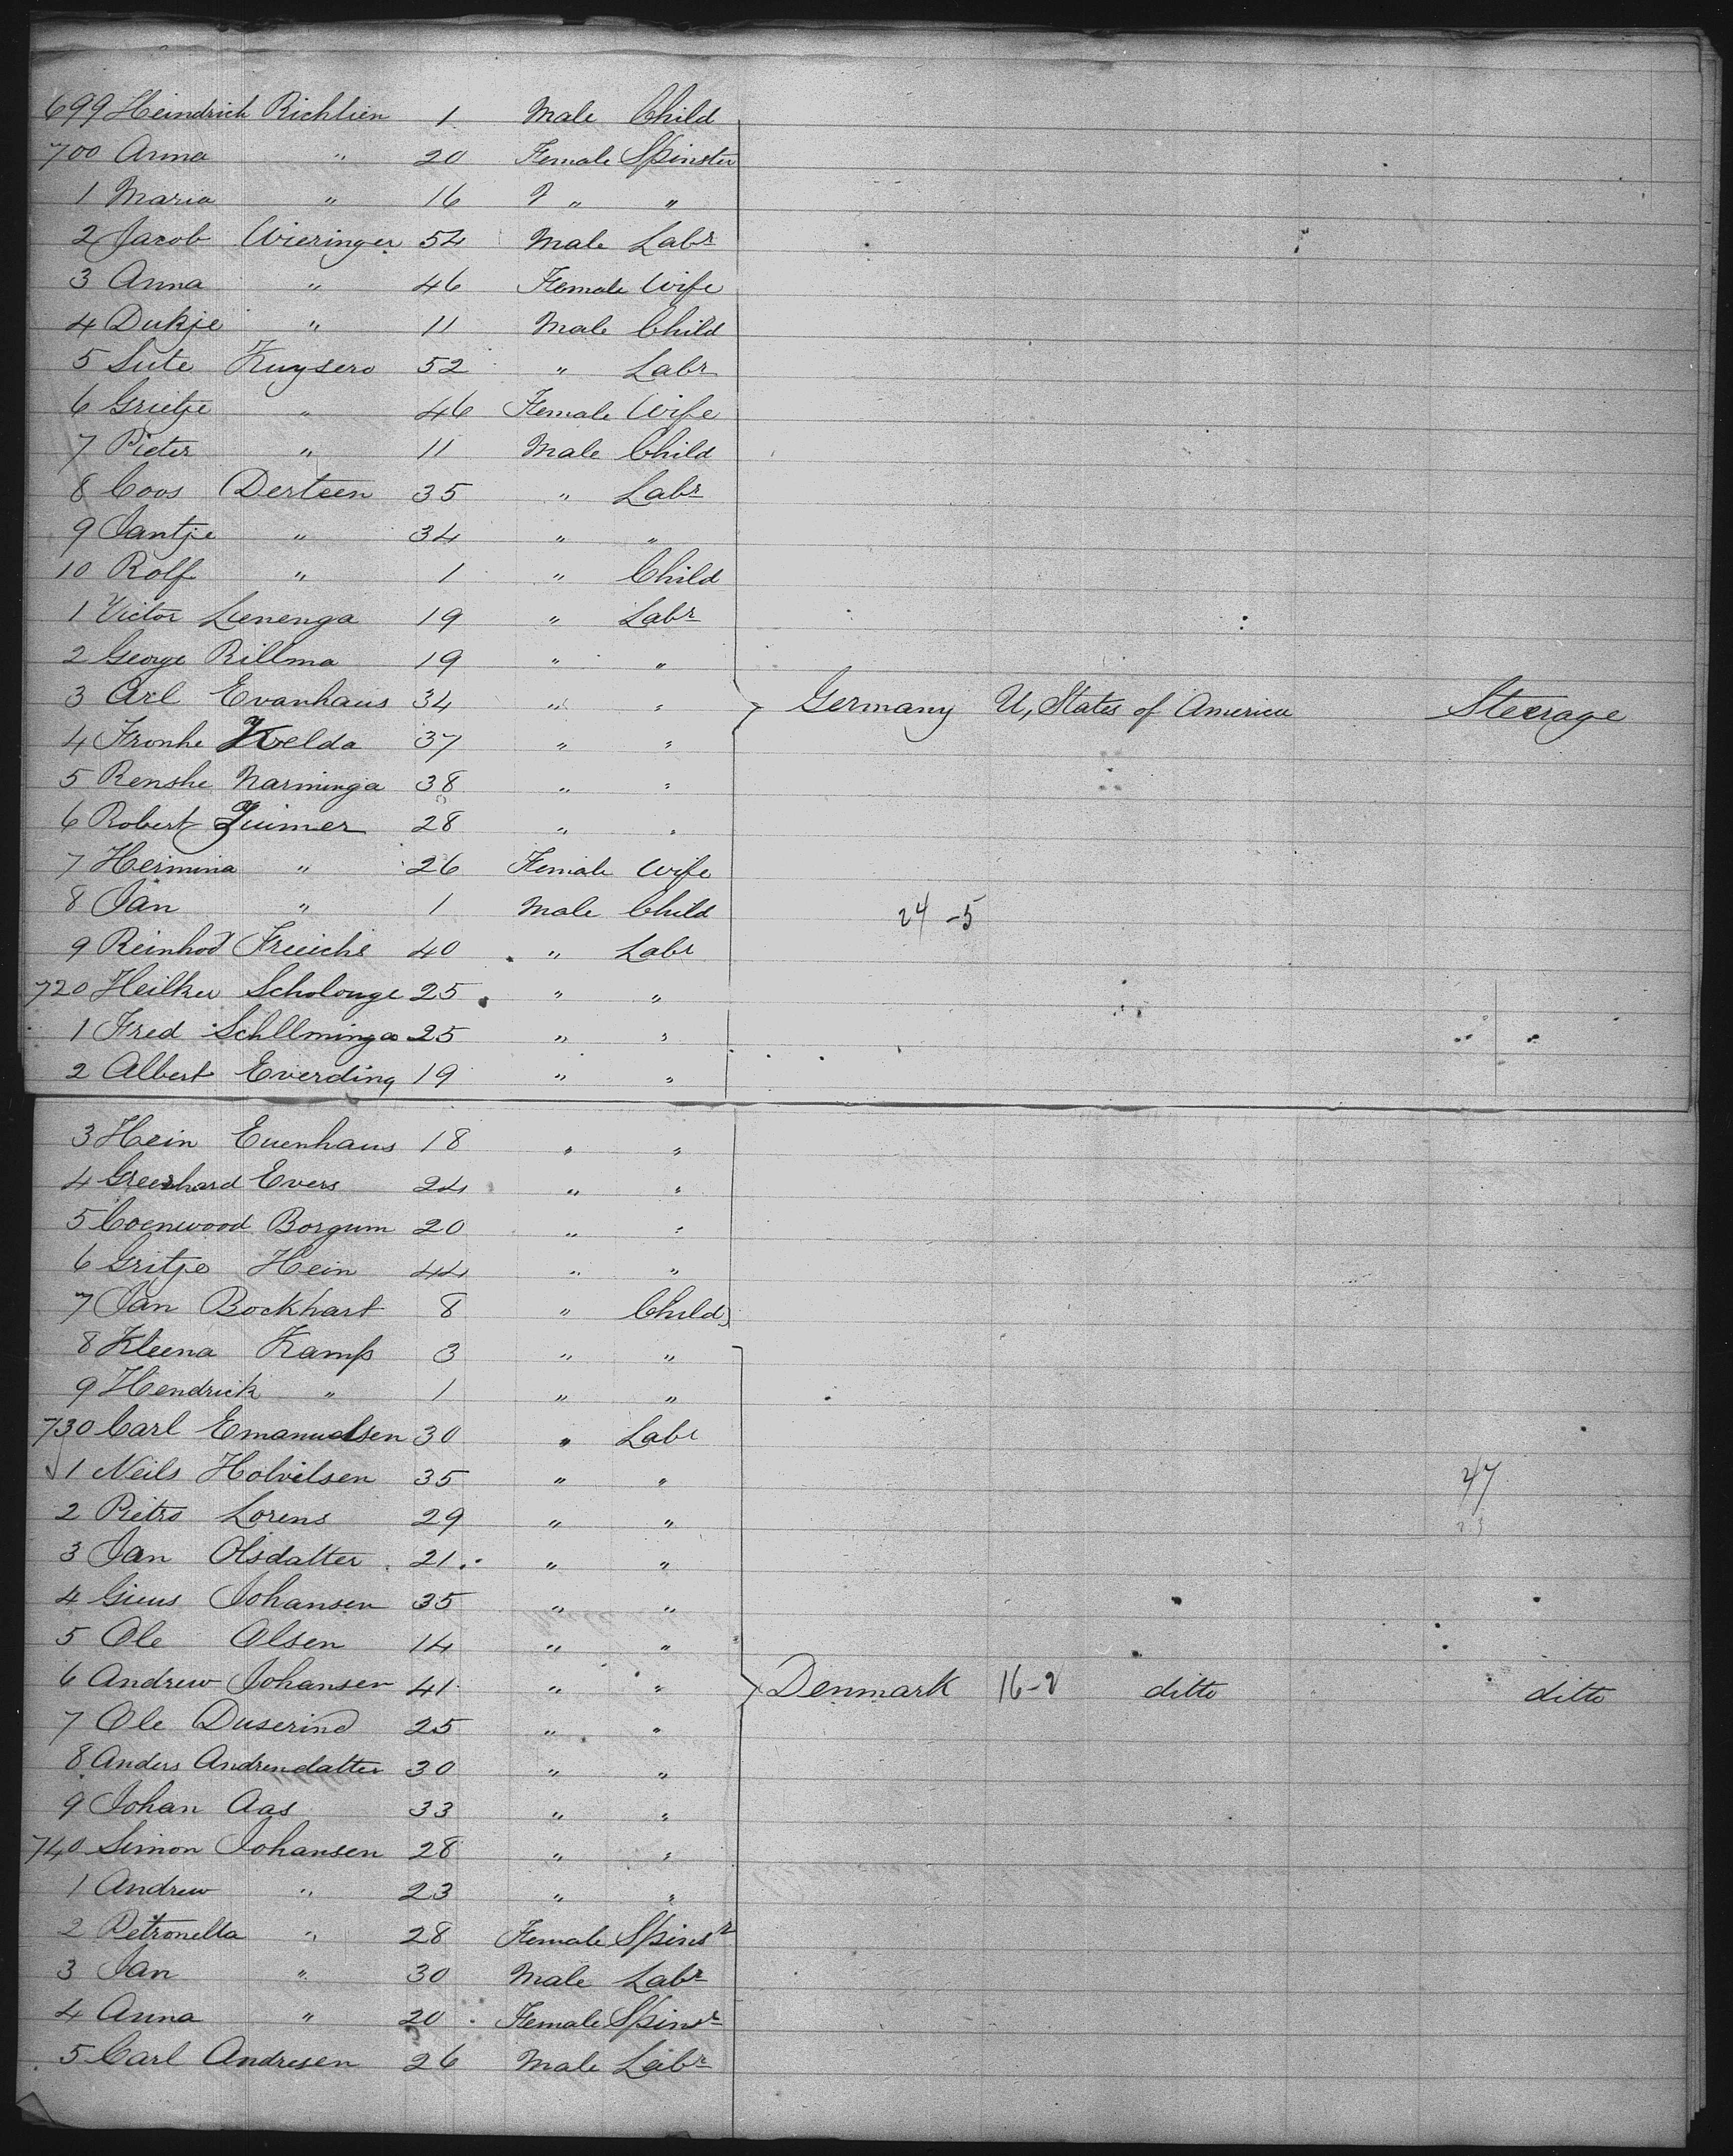 699 Heindrich Richlien 1 Male Child
700 Anna " 20 Female Spinster
1 Maria " 16 " "
2 Jacob Wieringer 54 Male Labr
3 Anna " 46 Female Wife
4 Dukje " 11 Male Child
5 Sute Kuysero 52 " Labr
6 Grietje " 46 Female Wife
7 Pieter " 11 Male Child
8 Coos Derteen 35 " Labr
9 Jantje " 34 " "
10 Rolf " 1 " Child
1 Victor Lenenga 19 " Labr
2 George Rillma 19 " "
3 Carl Evanhaus 34 " " Germany U, States of America Steerage
4 Fronke Kelda 37 " "
5 Renshe Narminga 38 " "
6 Robert Zuimer 28 " "
7 Hermina " 26 Female Wife
8 Jan " 1 Male Child 24-5
9 Reinhod Freeichs 40 " Labr
720 Heilker Scholonge 25 " "
1 Fred Schllminga 25 " "
2 Albert Everding 19 " "
3 Hein Euenhaus 18 " "
4 Greerhard Evers 24 " "
5 Coenwood Borgum 20 " "
6 Gritje Hein 44 " "
7 Jan Bockhart 8 " Child
8 Kleena Kamp 3 " "
9 Hendrick " 1 " "
730 Carl Emanuelsen 30 " Labr
1 Neils Holvilsen 35 " " 47
2 Pietro Lorens 29 " "
3 Jan Olsdatter 21 " "
4 Gieus Johansen 35 " "
5 Ole Olsen 14 " "
6 Andrew Johansen 41 " " Denmark 16-2 ditto ditto
7 Ole Duserind 25 " "
8 Anders Andrendatter 30 " "
9 Johan Aas 33 " "
740 Simon Johansen 28 " "
1 Andrew " 23 " "
2 Petronella " 28 Female Spinsr
3 Jan " 30 Male Labr
4 Anna " 20 Female Spinsr
5 Carl Andresen 26 Male Labr